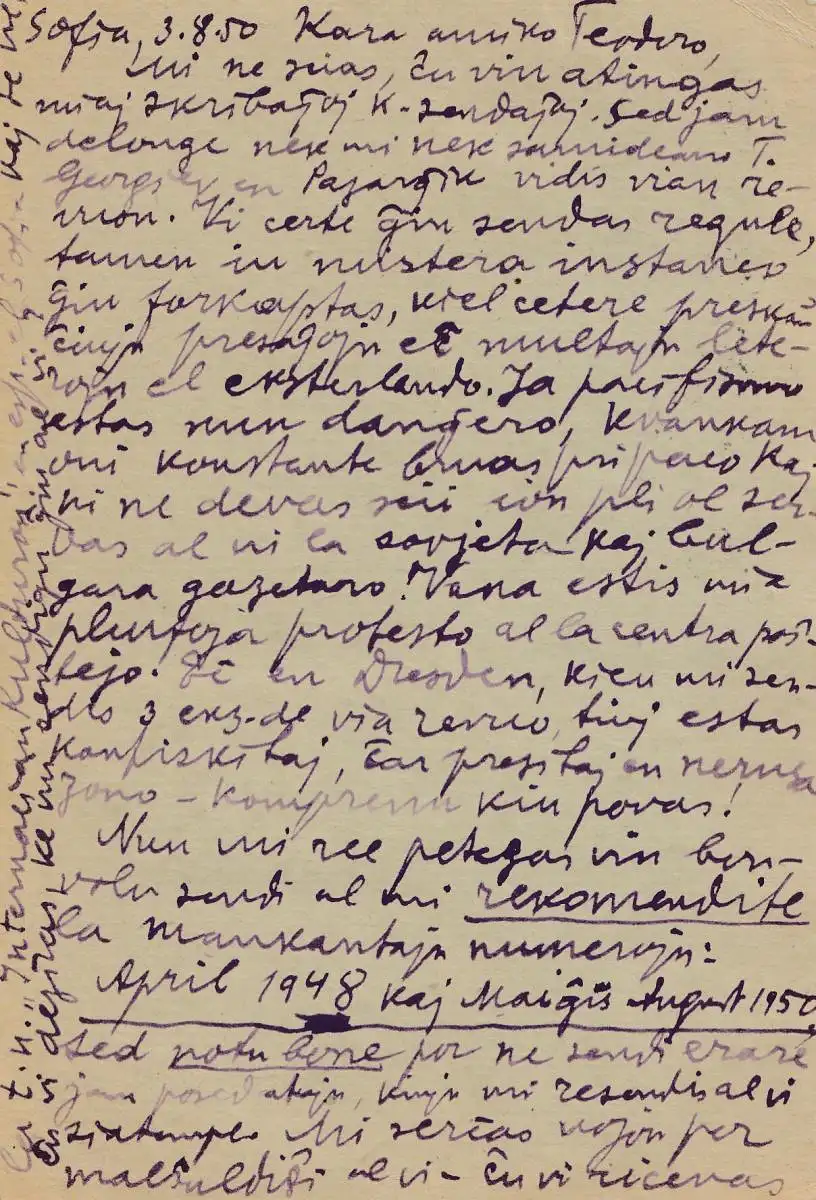 Sofia, 3.8.50 Kara amiko Teodoro,
Mi ne scias, ĉu vin atingas
miaj skribaĵoj k. sendaĵoj. Sed jam
delonge nek mi nek samideano T.
Georgiev en Pazarĝik vidis vian re-
vuon. Vi certe ĝin sendas regule,
tamen iu mistera instanco
ĝin forkaptas, kiel cetere preskaŭ
ĉiujn presaĵojn eĉ multajn lete-
rojn el eksterlando. Ja pacifismo
estas nun danĝero, kvankam
oni konstante bruas pri paco kaj
ni ne devas scii ion pli ol ser-
vas al ni la sovjeta kaj bul-
gara gazetaro! Vana estis mia
plurfoja protesto al la centra poŝ-
tejo. Eĉ en Dresden, kien mi sen-
dis 3 ekz. de via revuo, tiuj estas
konfiskitaj, ĉar presitaj en nerusa
zono – komprenu kiu povas!
Nun mi ree petegas vin bon-
volu sendi al mi rekomendite
la mankantajn numerojn:
April 1948 kaj Maiĝis August 1950,
sed notu bone por ne sendi erare
jam posedatajn, kiujn mi resendis al vi
siatempe. Mi serĉas vojon por
malŝuldiĝi al vi – ĉu vi ricevas
la t.n. "Internacian Kulturon" en esp. el Sofia kaj se ne,
ĉu vi deziras, ke mi sendigu ĝin al vi?